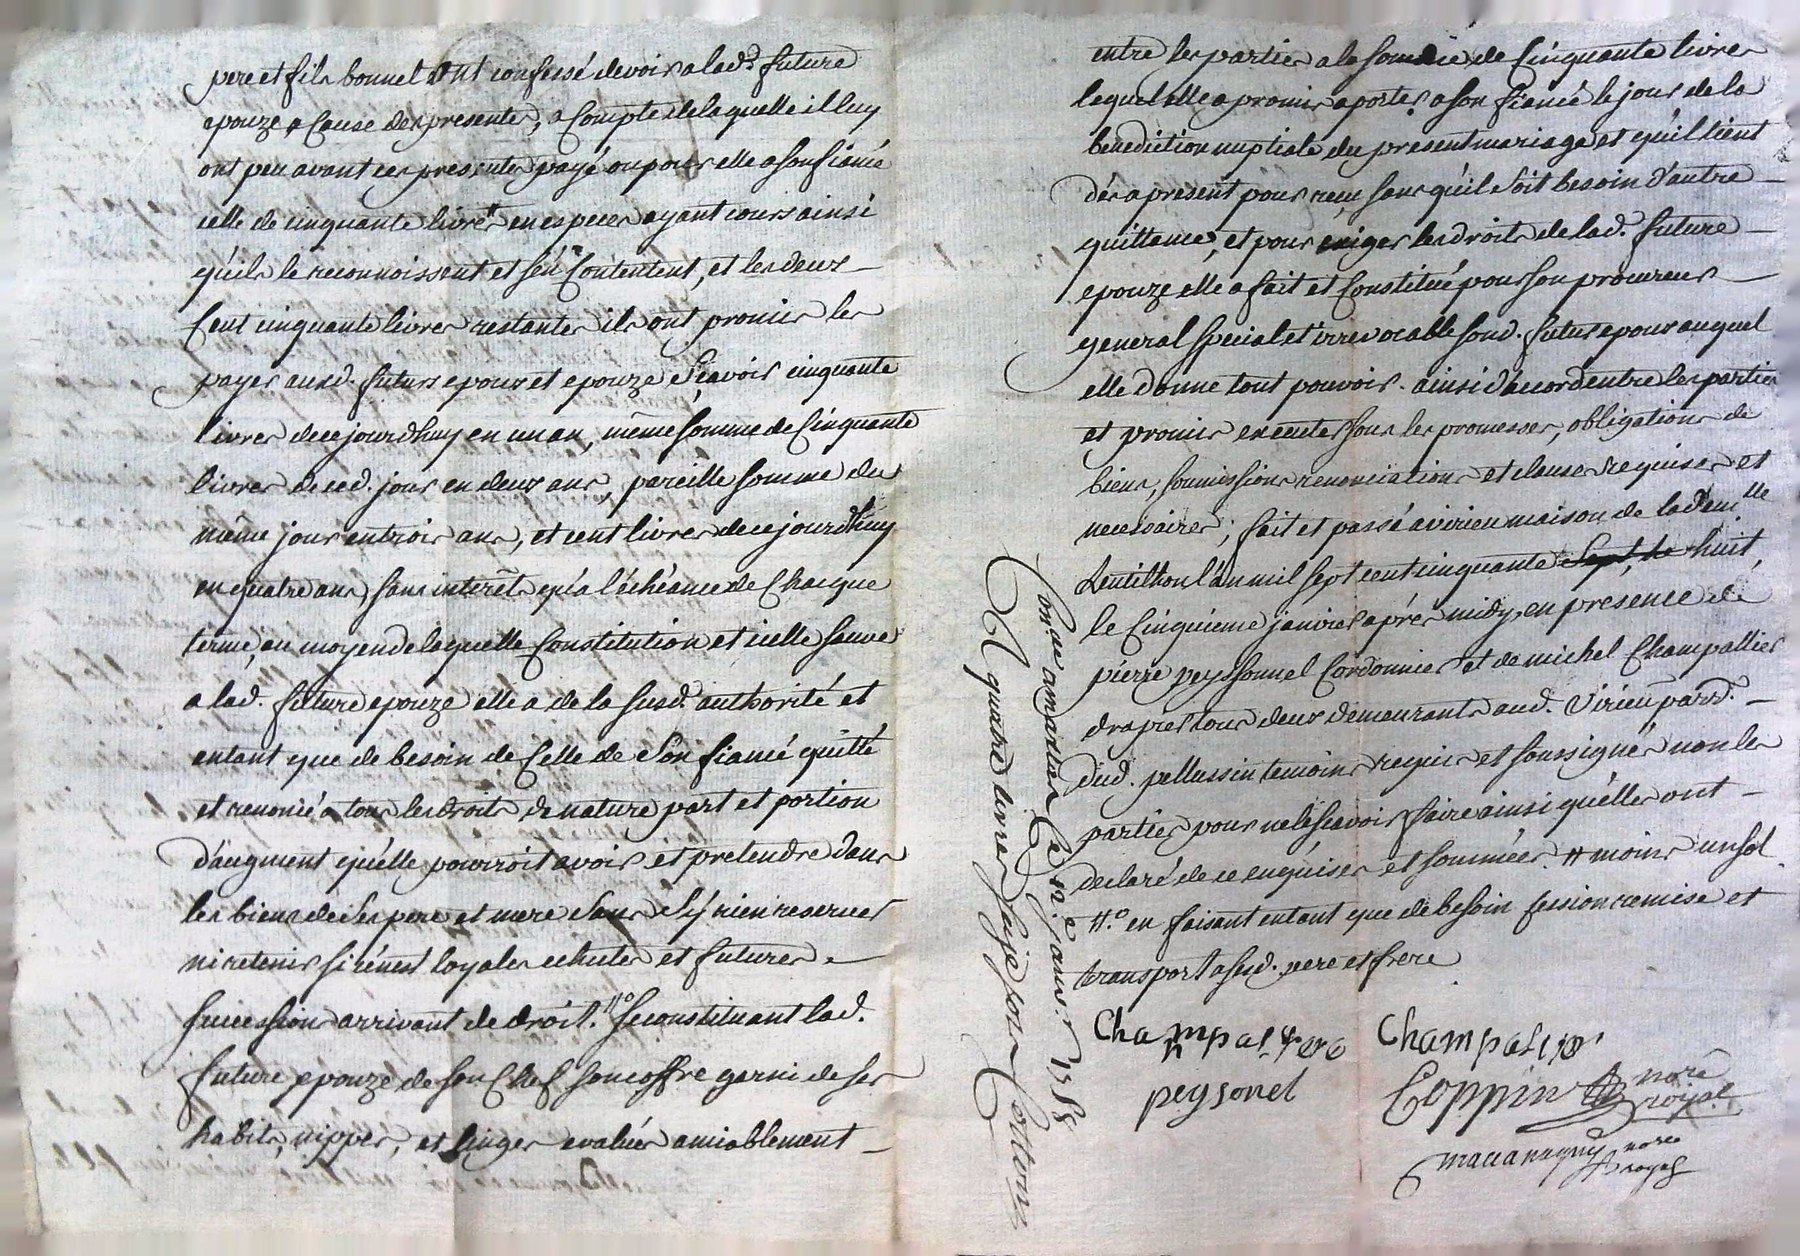 pere et fils bonnel ont confessé devoir a lad.e future
epouze a Cause des presentes, a Compte de laquelle il luy
ont par avant ces presentes payé ou pour elle a son fiancé
celle de cinquante livres en especes ayant cours ainsi
qu'ils le reconnoissent et s'en Contentent, et les deux
Cent cinquante livres restantes ils ont promis les
payer ausd. futurs epoux et epouze Sçavoir cinquante
livres de ce jourdhuy en un an, même somme de Cinquante
livres de ced. jour en deux ans, pareille somme du
même jour en trois ans, et cent livres de ce jourdhuy
en quatre ans, sans interêts qu'a l'échéance de Chacque
terme, au moyen de laquelle Constitution et icelle sauve
a lad. future epouze elle a de la susd. authorité et
entant que de besoin de Celle de Son fiancé quitté
et renoncé a tous les droits de nature part et portion
d'augment qu'elle pourroit avoir et pretendre dans
les biens de Ses pere et mere Sans S'y rien reserver
ni retenir si cen'est loyales echutes et futures
succession arrivant de droit. #° se constituant lad.
future epouze de son Chef son coffre garni de ses
habits, nippes, et linges evalués amiablement
entre les parties a la somme de Cinquante livres
lequel elle a promis aporter a son fiancé le jour de la
benediction nuptiale du present mariage et qu'il tient
dés a present pour reçu sans qu'il soit besoin d'autre
quittance, et pour exiger les droits de lad. future
epouze elle a fait et Constitué pour son procureur
general special et irrevocable sond. futur epoux auquel
elle donne tout pouvoir. ainsi d'accord entre les parties
et promis executer sous les promesses, obligations de
biens, soumissions renonciations et clauses requises et
necessaires; fait et passé a virieu maison de la dem.lle
Lentillon l'an mil sept cent cinquante Sept, le huit,
le Cinquieme janvier aprés midy, en presence de
pierre peyssonnel Cordonnier et de michel Champallier
drapier tous deux demeurants aud. Virieu parr.
dud. pellussin temoins requis et soussignés non les
parties pour ne le sçavoir faire ainsi qu'elles ont
declaré de ce enquises et sommées # moins un sol
#.° en faisant entant que de besoin cession remise et
transport a sesd. pere et frere
Champalier
Peysonel
Coppin nore royal
nore royal
le n.e janv.r 1758
quatre livres